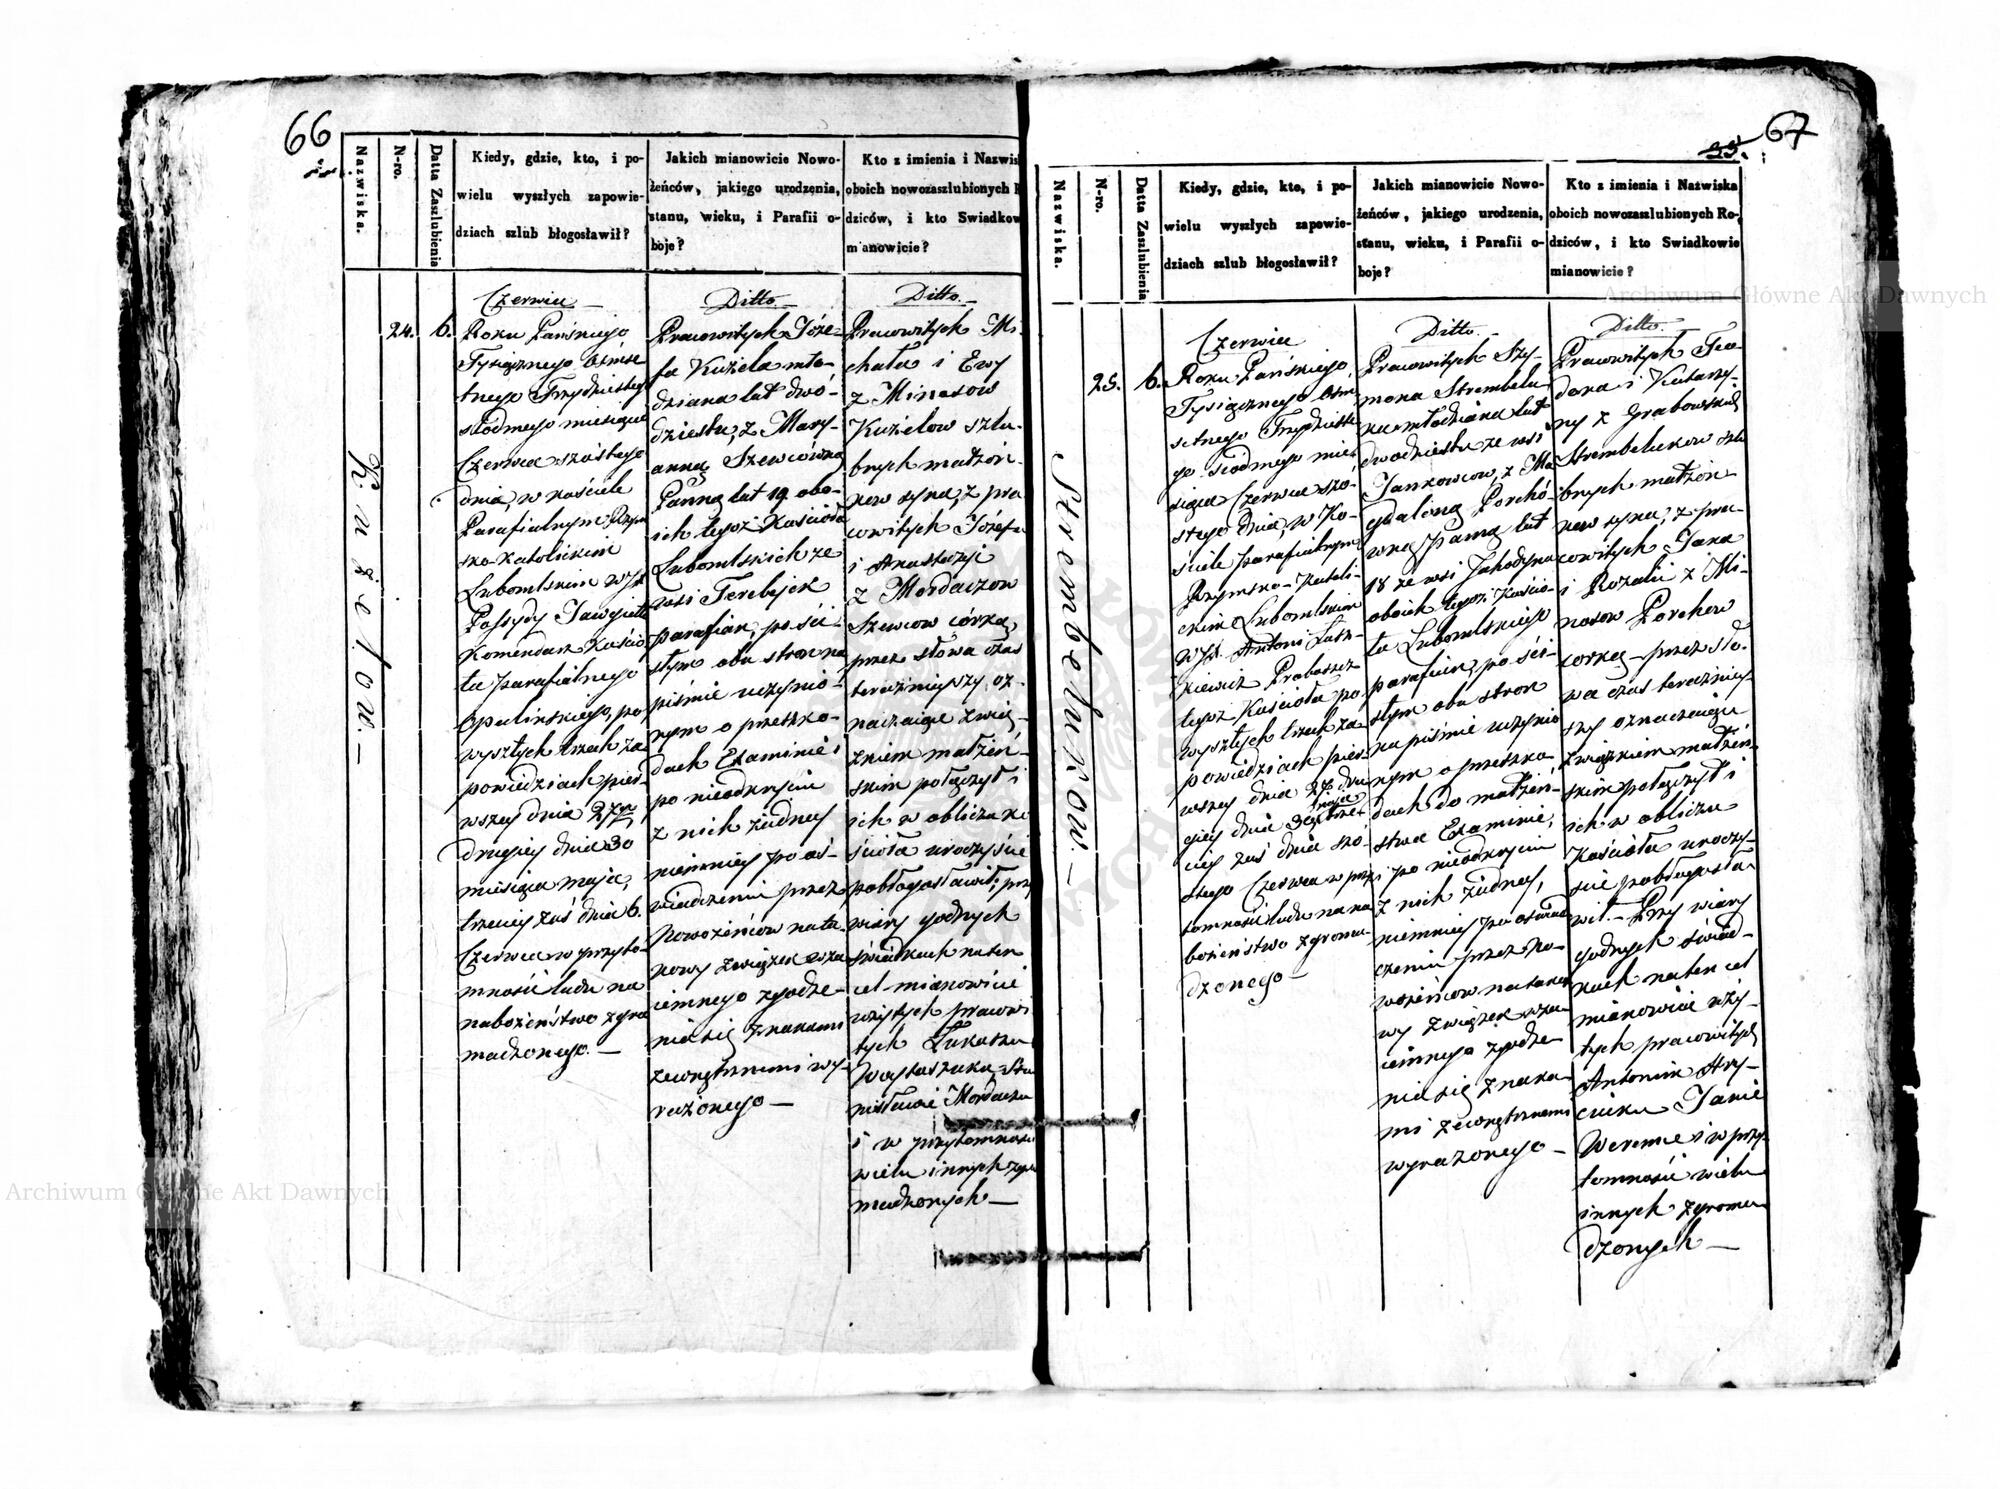 66
Nazwiska.
N-ro.
Datta Zaślubienia
Kiedy, gdzie, kto, i po-
wielu wyszłych zapowie-
dziach szlub błogosławił?
Jakich mianowicie Nowo-
żeńców, jakiego urodzenia,
stanu, wieku, i Parafii o-
boje?
Kto z imienia i Nazwis
oboich nowozaszlubionych R
dziców, i kto Swiadkow
mianowicie?
Kuzelow.—
24.
6.
Czerwiec—
Roku Pańskiego
Tysiącznego Ośmse
tnego Trzydziestego
siódmego miesiąca
Czerwca szóstego
dnia, w kościele
Parafialnym Rzym
sko-Katolickim
Lubomlskim WJX
Komendarz Kościo
ła parafialnego
Opalińskiego, po
wyszłych trzech za
powiedziach pier
wszey dnia 27go
drugiey dnia 30
miesiąca maja,
trzeciey zaś dnia 6.
Czerwca w przyto-
mności ludu na
nabożeństwo zgro
madzonego.—
Ditto.—
Pracowitych Józe-
fa Kuzela mło-
dziana lat dwó-
dziestu, z Mary-
anną Szewcówną
Panną lat 19 obo-
ich tegoż Kościoła
Lubomlskich ze
wsi Terebejek
parafian, po ści-
słym obu stron na
piśmie uczynio-
nym o przeszko-
dach Examinie i
po nieodkryciu
z nich żadney
niemniey po oś-
wiadczeniu przez
Nowożeńców na ta
kowy związek wza
iemnego zgodze-
nia się znakami
zewnętrznemi wy-
rażonego—
Ditto.—
Pracowitych Mi-
chała i Ewy
z Minosow
Kuzelow szlu-
bnych małżon-
kow syna, z pra
cowitych Józefa
i Anastazyi
z Mordaczow
Szewcow córką,
przez słowa czas
teraźnieyszy oz-
naczaiące zwią-
zkiem małżeń-
skim połączył i
ich w obliczu ko
ścioła uroczyście
pobłogosławił; przy
wiary godnych
świadkach na ten
cel mianowicie
wżiętych pracowi
tych Łukaszu
nisławie Mordaczu
i w przytomności
wielu innych zgro
madzonych—
67
25.
Nazwiska.
N-ro.
Datta Zaślubienia
Kiedy, gdzie, kto, i po-
wielu wyszłych zapowie-
dziach szlub błogosławił?
Jakich mianowicie Nowo-
żeńców, jakiego urodzenia,
stanu, wieku, i Parafii o-
boje?
Kto z imienia i Nazwiska
oboich nowozaszlubionych Ro-
dziców, i kto Swiadkowie
mianowicie?
Strembelukow.—
25.
6.
Czerwiec
Roku Pańskiego
Tysiącznego Ośm
setnego Trzydzieste
go siódmego mie-
siąca Czerwca szó-
stego dnia, w Ko-
ściele parafialnym
Rzymsko-Katoli-
ckim Lubomlskim
WJX. Antoni Łasz-
kiewicz Proboszcz
tegoż Kościoła po
wyszłych trzech za
powiedziach pier-
wszey dnia 27 dru
giey dnia 30 maja trze
ciey zaś dnia szó-
stego Czerwca w przy
tomności ludu na na
bożeństwo zgroma-
dzonego—
Ditto.
Pracowitych Szy-
mona Strembelu
ka młodziana lat
dwadziestu ze wsi
Jankowcow, z Ma
gdaleną Porchó-
wną Panną lat
18 ze wsi Jahodyna
oboich tegoż Kościo-
ła Lubomlskiego
parafian, po ści-
słym obu stron
na piśmie uczynio
nym o przeszko-
dach do małżeń-
stwa Examinie,
i po nieodkryciu
z nich żadney,
niemniey po oświad
czeniu przez No-
wożeńców na takow
wy związek wza
iemnego zgodze
nia się znaka-
mi zewnętrznemi
wyrażonego—
Ditto.—
Pracowitych Teo
dora i Katarzy-
ny z Grabowskich
Strembelukow szlu
bnych małżon
kow syna, z pra-
cowitych Jana
i Rozalii z Mi-
nosow Porchow
corką—przez sło-
wa czas teraźniey
szy oznaczaiące
związkiem małżeń
skim połączył i
ich w obliczu
Kościoła uroczy-
ście pobłogosła
wił.—Przy wiary
godnych świad-
kach na ten cel
mianowicie wży-
tych pracowitych
Antonim Hry-
ciuku Janie
Weremie i w przy-
tomności wielu
innych zgroma
dzonych—
Archiwum Główne Akt Dawnych
Archiwum Główne Akt Dawnych